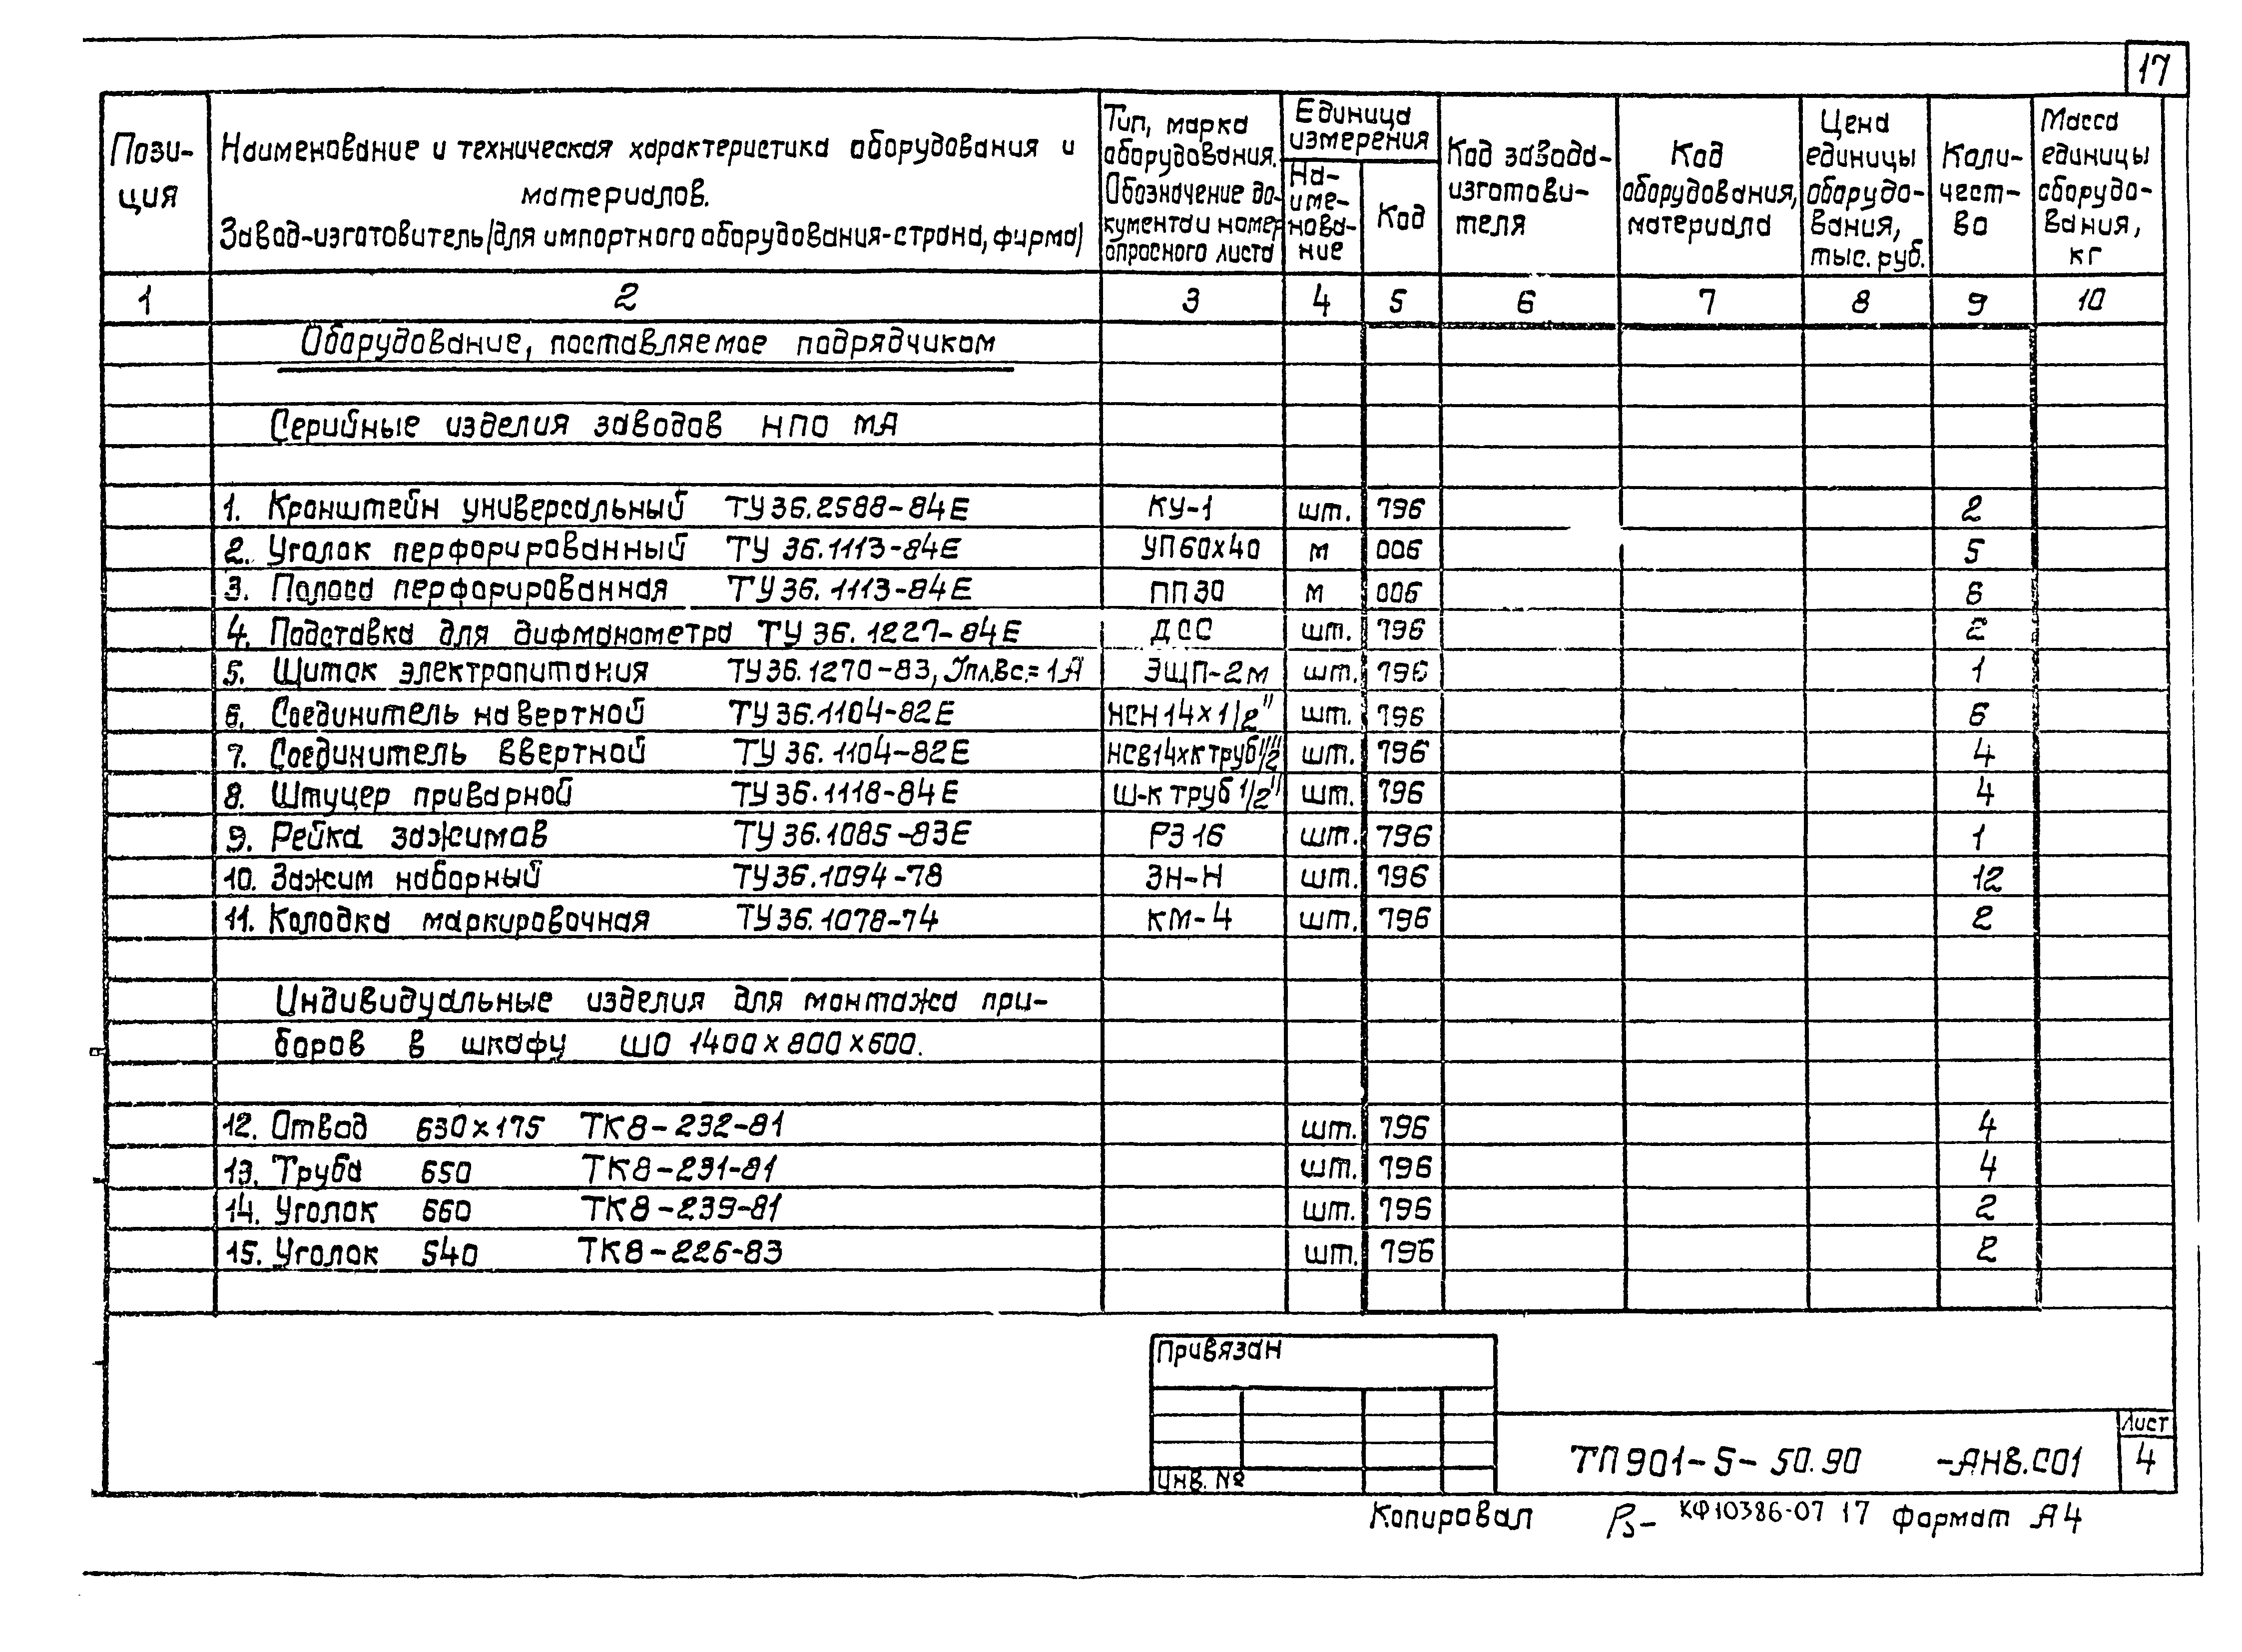 17
Пози-
ция
Наименование и техническая характеристика оборудования и
материалов.
Завод-изготовитель (для импортного оборудования-страна, фирма)
Тип, марка
оборудования.
Обозначение до-
кумента и номер
опросного листа
Единица
измерения
На-
име-
нова-
ние
Код
Код завода-
изготови-
теля
Код
оборудования,
материала
Цена
единицы
оборудо-
вания,
тыс. руб.
Коли-
чест-
во
Масса
единицы
оборудо-
вания,
кг
1 2 3 4 5 6 7 8 9 10
Оборудование, поставляемое подрядчиком
Серийные изделия заводов НПО МА
1. Кронштейн универсальный ТУ36.2588-84Е КУ-1 шт. 796 2
2. Уголок перфорированный ТУ 36.1113-84Е УП60х40 м 006 5
3. Полоса перфорированная ТУ36.1113-84Е ПП30 м 006 6
4. Подставка для дифманометра ТУ 36.1227-84Е ДСС шт. 796 2
5. Щиток электропитания ТУ36.1270-83, Iпл.вс.=1А ЭЩП-2м шт. 796 1
6. Соединитель навертной ТУ36.1104-82Е НСН14х1/2" шт. 796 6
7. Соединитель ввертной ТУ 36.1104-82Е НСВ14хК труб 1/2" шт. 796 4
8. Штуцер приварной ТУ36.1118-84Е Ш-К труб 1/2" шт. 796 4
9. Рейка зажимов ТУ36.1085-83Е РЗ16 шт. 796 1
10. Зажим наборный ТУ36.1094-78 ЗН-Н шт. 796 12
11. Колодка маркировочная ТУ36.1078-74 КМ-4 шт. 796 2
Индивидуальные изделия для монтажа при-
боров в шкафу ШО 1400х800х600.
12. Отвод 630х175 ТК8-232-81 шт. 796 4
13. Труба 650 ТК8-231-81 шт. 796 4
14. Уголок 660 ТК8-239-81 шт. 796 2
15. Уголок 540 ТК8-226-83 шт. 796 2
Привязан
Инв. №
ТП901-5-50.90 -АНВ.СО1
Лист
4
Копировал КФ10386-07 17 Формат А4